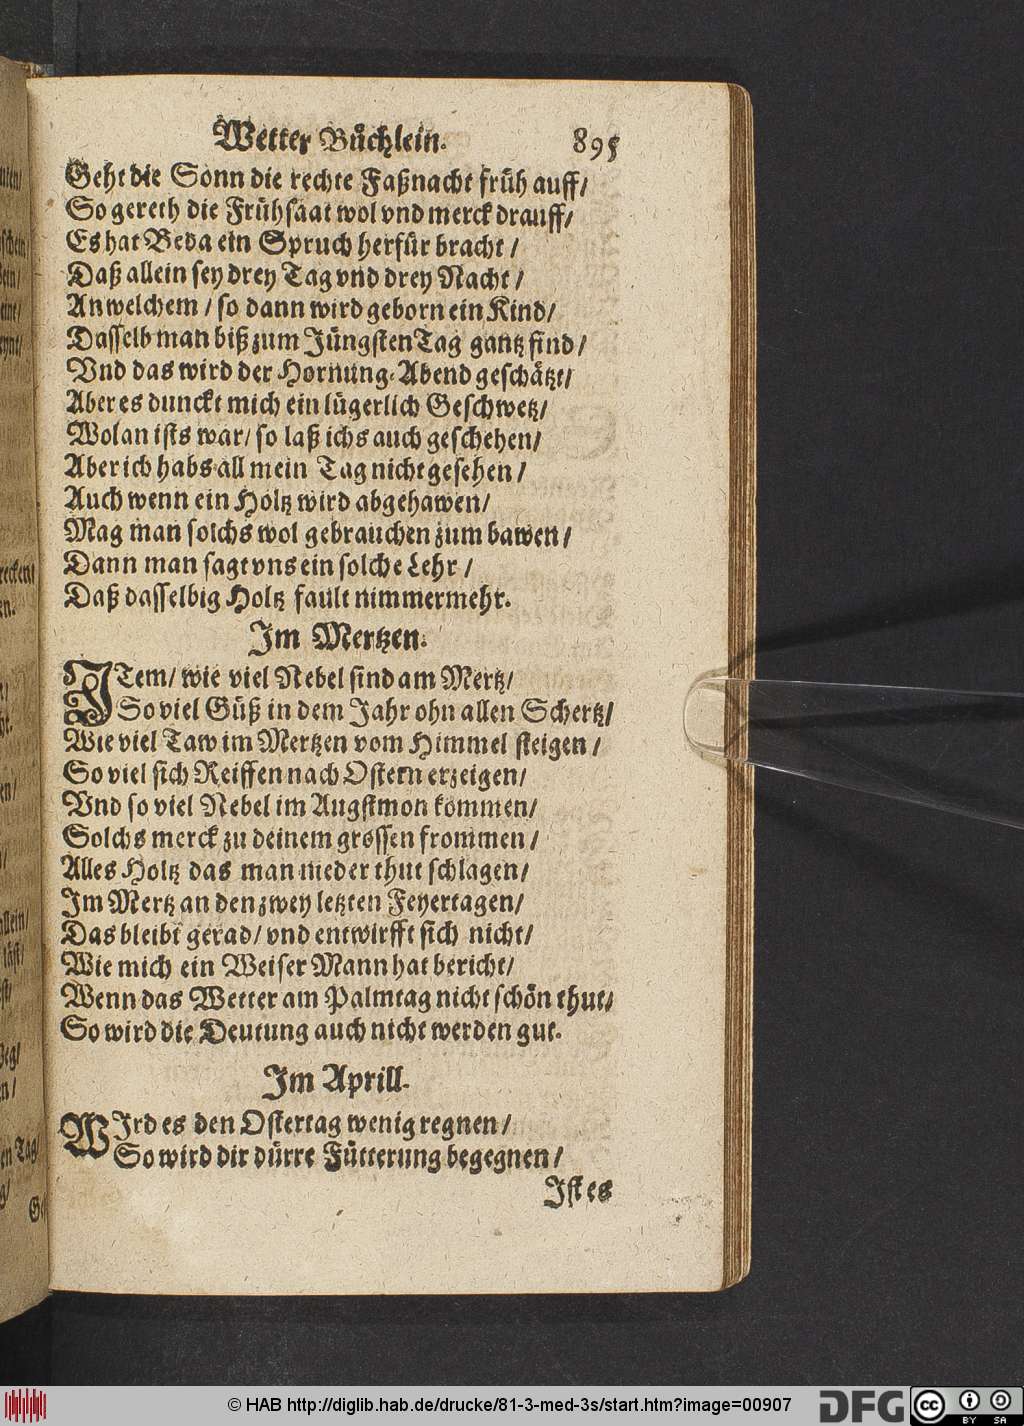 Wetter Bůchlein. 895
Geht die Sonn die rechte Faßnacht früh auff/
So gereth die Frühsaat wol vnd merck drauff/
Es hat Beda ein Spruch herfür bracht/
Daß allein sey drey Tag vnd drey Nacht/
An welchem/ so dann wird geborn ein Kind/
Dasselb man biß zum Jüngsten Tag gantz find/
Vnd das wird der Hornung-Abend geschätzt/
Aber es dunckt mich ein lügerlich Geschwetz/
Wolan ists war/ so laß ichs auch geschehen/
Aber ich habs all mein Tag nicht gesehen/
Auch wenn ein Holtz wird abgehawen/
Mag man solchs wol gebrauchen zum bawen/
Dann man sagt vns ein solche Lehr/
Daß dasselbig Holtz fault nimmermehr.
Im Mertzen.
ITem/ wie viel Nebel sind am Mertz/
So viel Güß in dem Jahr ohn allen Schertz/
Wie viel Taw im Mertzen vom Himmel steigen/
So viel sich Reiffen nach Ostern erzeigen/
Vnd so viel Nebel im Augstmon kommen/
Solchs merck zu deinem grossen frommen/
Alles Holtz das man nieder thut schlagen/
Im Mertz an den zwey letzten Feyertagen/
Das bleibt gerad/ vnd entwirfft sich nicht/
Wie mich ein Weiser Mann hat bericht/
Wenn das Wetter am Palmtag nicht schön thut/
So wird die Deutung auch nicht werden gut.
Im Aprill.
WIrd es den Ostertag wenig regnen/
So wird dir dürre Fütterung begegnen/
Ist es
© HAB http://diglib.hab.de/drucke/81-3-med-3s/start.htm?image=00907
DFG
cc BY SA